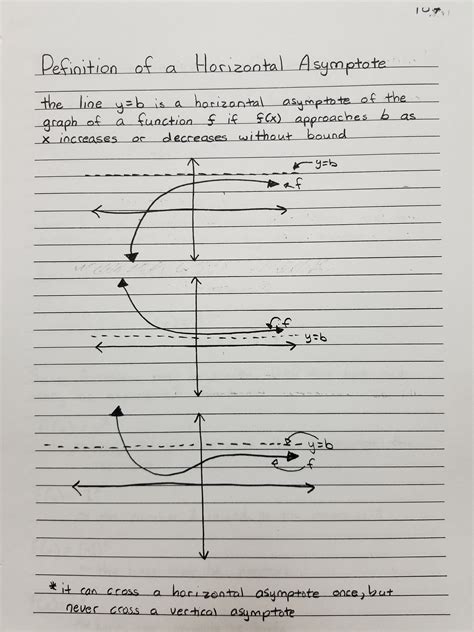 Definition of a Horizontal Asymptote
the line y=b is a horizontal asymptote of the
graph of a function f if f(x) approaches b as
x increases or decreases without bound
y=b
f
f
y=b
y=b
f
*it can cross a horizontal asymptote once, but
never cross a vertical asymptote